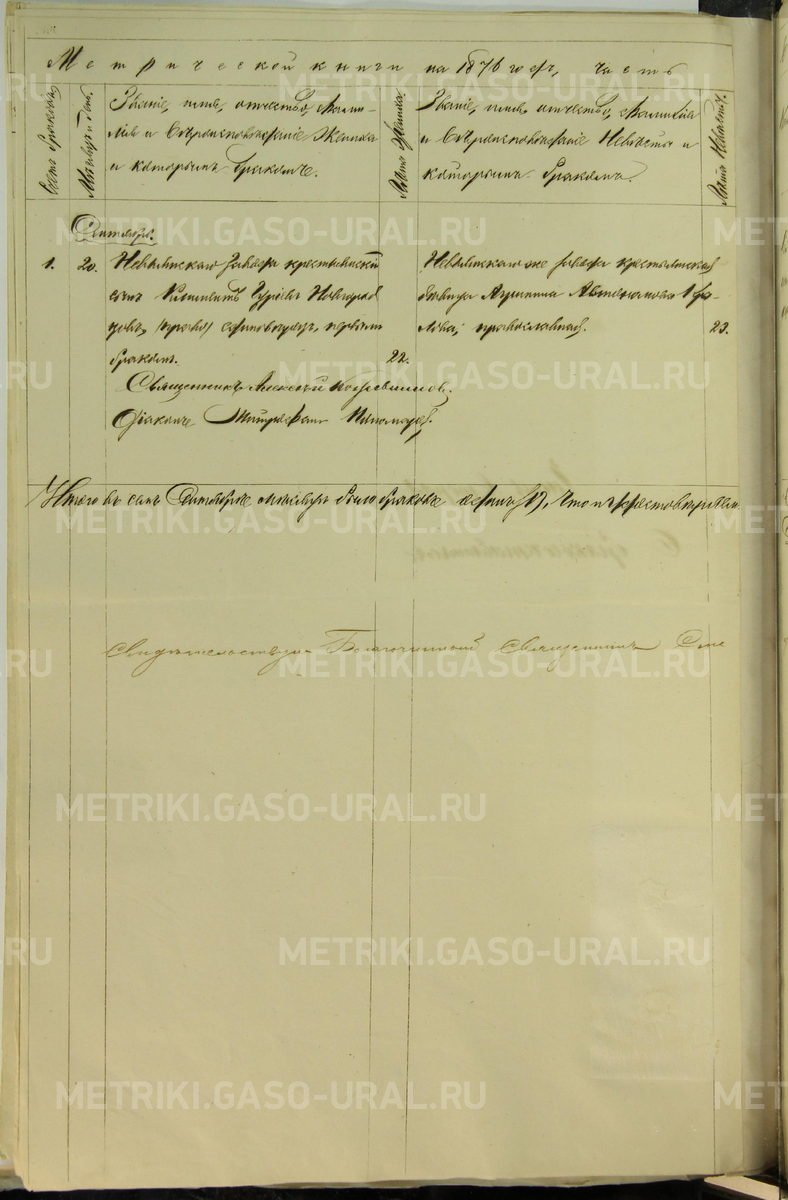 Метрической книги на 1876 годъ, часть
Счетъ браковъ.
Мѣсяцъ и день.
Званіе, имя, отчество, фами-
лія и вѣроисповѣданіе Жениха
и которымъ бракомъ.
Лѣта Жениха.
Званіе, имя, отчество, фамилія
и вѣроисповѣданіе Невѣсты и
которымъ бракомъ.
Лѣта Невѣсты.
Сентябрь.
1. 20. Невьянскаго завода крестьянскій
сынъ Климентъ Гурiевъ Новгород
цовъ, единовѣрецъ, первымъ
бракомъ. 22.
Невьянскаго же завода крестьянская
дѣвица Агрипина
православная. 23.
Священникъ Алексѣй
Діаконъ Митрофанъ Пономаревъ.
Итого въ семъ Сентябрѣ мѣсяцѣ было браковъ одинъ (1),
Свидѣтельствую Благочинный Священникъ
METRIKI.GASO-URAL.RU